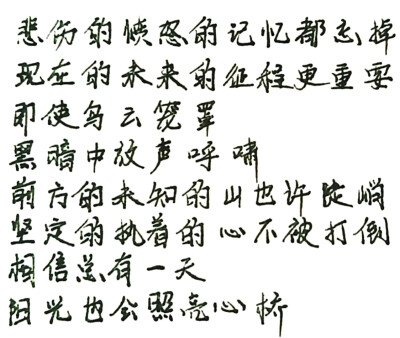 悲伤的愤怒的记忆都忘掉
现在的未来的征程更重要
即使乌云笼罩
黑暗中放声呼啸
前方的未知的山也许陡峭
坚定的执着的心不被打倒
相信总有一天
阳光也会照亮心桥